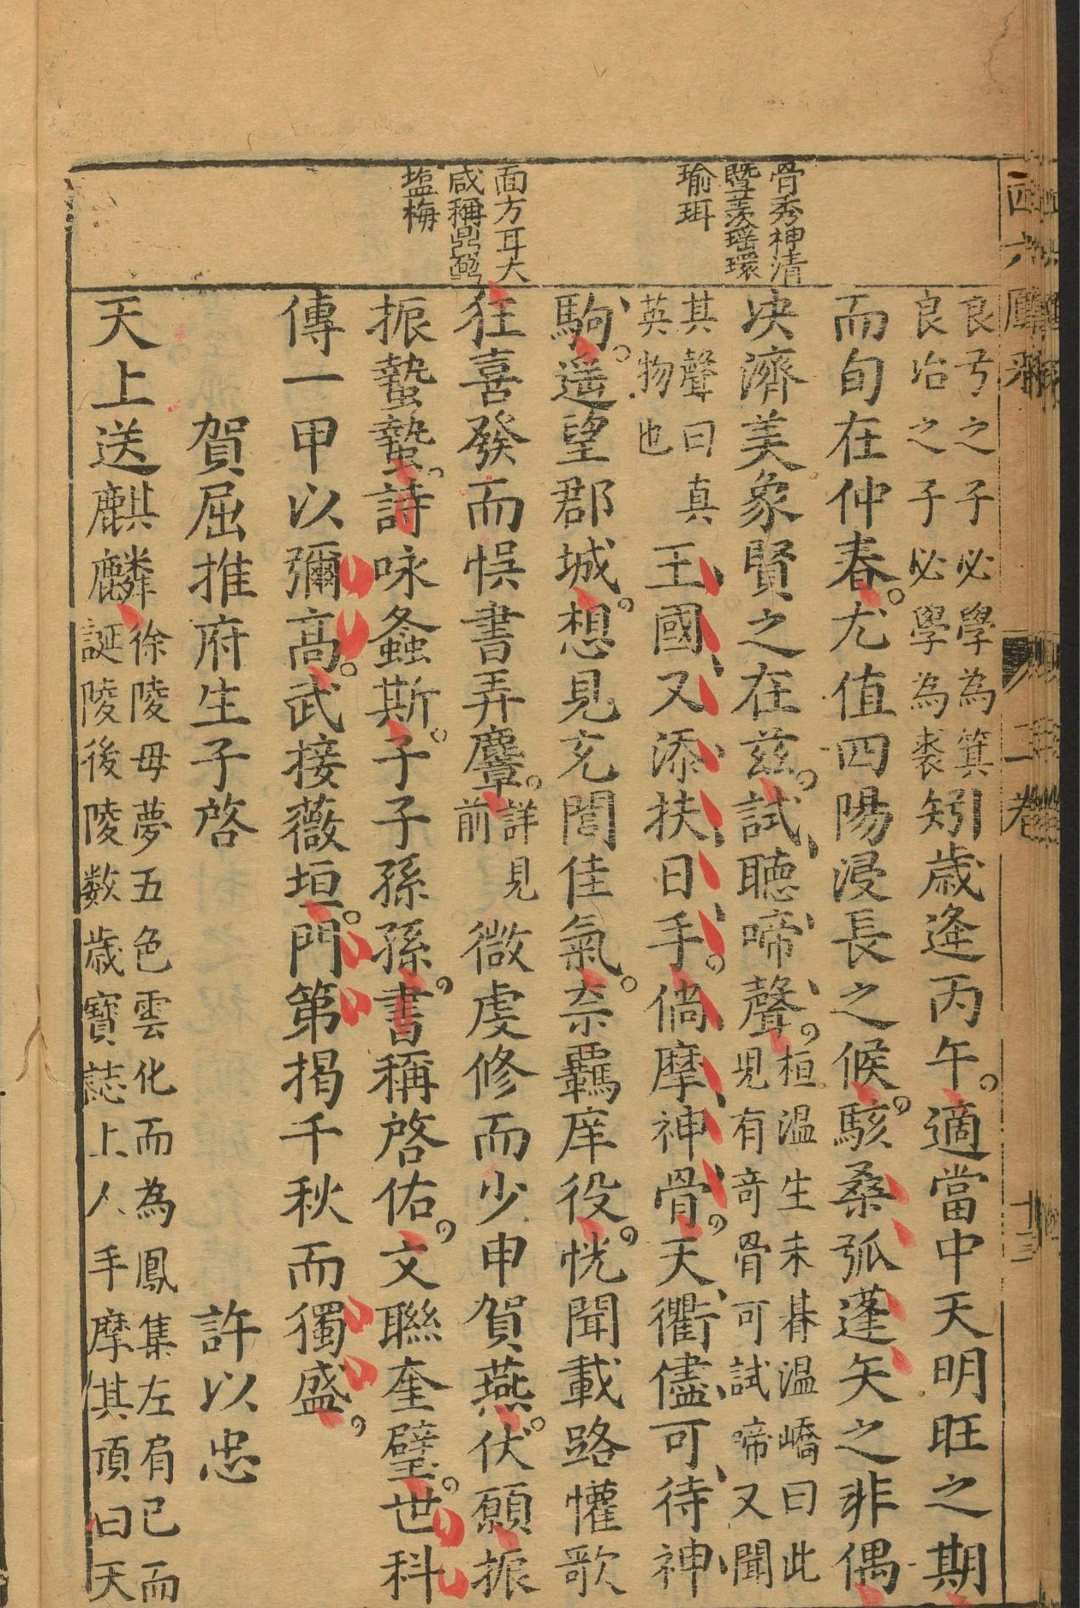 骨秀神清
暨羨瑶環
瑜珥
面方耳大
咸稱鼎鼐
塩梅
良弓之子必學為箕
良冶之子必學為裘
矧歲逢丙午適當中天明旺之期
而旬在仲春尤值四陽浸長之候駭桑弧蓬矢之非偶
决濟美象賢之在茲試聽啼聲
桓温生未朞温嶠曰此
児有竒骨可試啼又聞
其聲曰真
英物也
王國又添扶日手倘摩神骨天衢儘可待神
駒遥望郡城想見充閭佳氣奈羈庠役恍聞載路懽歌
狂喜發而悞書弄麞
詳見
前
微虔修而少申賀燕伏願振
振蟄蟄詩咏螽斯子子孫孫書稱啓佑文聯奎璧世科
傳一甲以彌高武接薇垣門第揭千秋而獨盛
賀屈推府生子啓
許以忠
天上送麒麟
徐陵母夢五色雲化而為鳳集左肩已而
誕陵後陵数歲寶誌上人手摩其頂曰天
二卷
十三